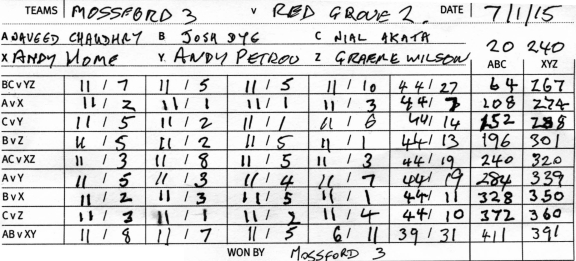 TEAMS MOSSFORD 3 V RED GROVE 2. DATE 7/1/15
A NAVEED CHAUDHRY B JOSH DYE C NIAL AKATA 20 240
X ANDY HOME Y ANDY PETROU Z GRAEME WILSON ABC XYZ
BCvYZ 11 / 7 11 / 5 11 / 5 11 / 10 44 / 27 64 267
AvX 11 / 2 11 / 1 11 / 1 11 / 3 44 / 7 108 274
CvY 11 / 5 11 / 2 11 / 1 11 / 6 44 / 14 152 288
BvZ 11 / 5 11 / 2 11 / 5 11 / 1 44 / 13 196 301
ACvXZ 11 / 3 11 / 8 11 / 5 11 / 3 44 / 19 240 320
AvY 11 / 5 11 / 3 11 / 4 11 / 7 44 / 19 284 339
BvX 11 / 2 11 / 3 11 / 5 11 / 1 44 / 11 328 350
CvZ 11 / 3 11 / 1 11 / 2 11 / 4 44 / 10 372 360
ABvXY 11 / 8 11 / 7 11 / 5 6 / 11 39 / 31 411 391
WON BY MOSSFORD 3